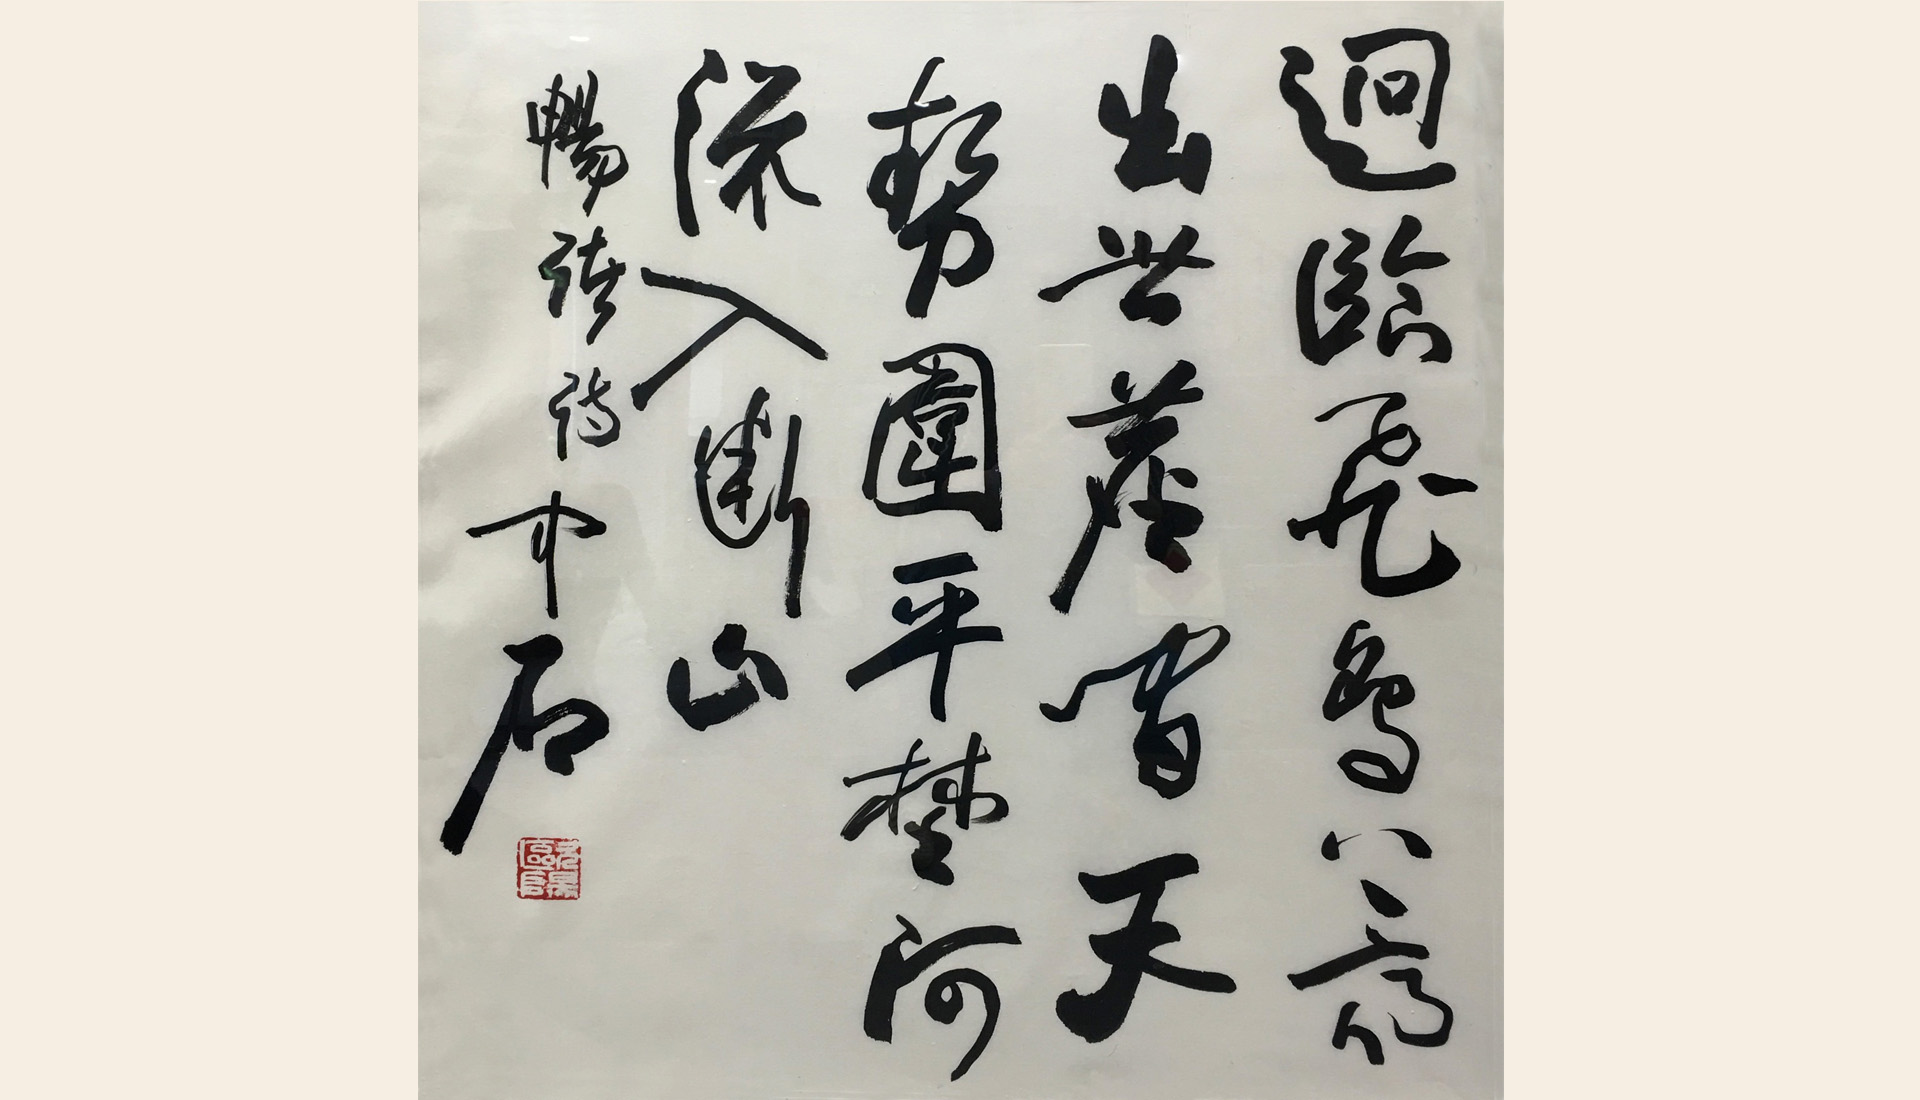 迥臨飛鳥上高
出世塵間天
勢圍平埜河
流入断山
暢諸詩 中石